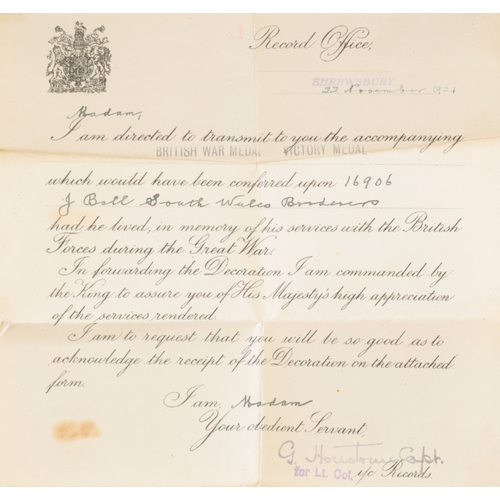 Record Office,
SHREWSBURY
22 November 1921
Madam,
I am directed to transmit to you the accompanying
BRITISH WAR MEDAL VICTORY MEDAL
which would have been conferred upon 16906
J Ball South Wales Borderers
had he lived, in memory of his services with the British
Forces during the Great War.
In forwarding the Decoration I am commanded by
the King to assure you of His Majesty's high appreciation
of the services rendered
I am to request that you will be so good as to
acknowledge the receipt of the Decoration on the attached
form.
I am, Madam
Your obedient Servant,
G. Capt.
for Lt. Col. i/c Records